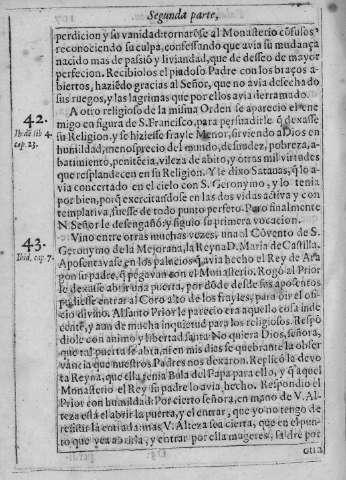 Segunda parte,
perdicion y su vanidad: tornarõse al Monasterio cõfusos,
reconociendo su culpa, confessando que avia su mudança
nacido mas de passiõ y liviandad, que de desseo de mayor
perfecion. Recibiolos el piadoso Padre con los braços a-
biertos, haziẽdo gracias al Señor, que no avia desechado
sus ruegos, y las lagrimas que por ellos avia derramado.
A otro religioso de la misma Orden se aparecio el ene
migo en figura de S. Francisco, para persuadirle q̃ dexasse
su Religion, y se hiziesse frayle Menor, sirviendo a Dios en
humildad, menosprecio del mundo, desnudez, pobreza, a-
batimiento, penitẽcia, vileza de abito, y otras mil virtudes
que resplandecen en su Religion. Y le dixo Satanas, q̃ lo a-
via concertado en el cielo con S. Geronymo, y lo tenia
por bien, porq̃ exercitandose en las dos vidas activa y con
templativa, fuesse de todo punto perfeto. Pero finalmente
N. Señor le desengañò: y siguio su primera vocacion.
Vino entre otras muchas vezes, una al Cõvento de S.
Geronymo de la Mejorana, la Reyna D. Maria de Castilla.
Aposentavase en los palacios q̃ avia hecho el Rey de Ara
gon su padre, q̃ pegavan con el Monasterio. Rogò al Prior
le dexasse abrir una puerta, por dõde desde sus aposentos
pudiesse entrar al Coro alto de los frayles, para oir el ofi-
cio divino. Al santo Prior le parecio era aquello cosa inde
cente, y aun de mucha inquietud para los religiosos. Respõ
diole con animo y libertad santa: No quiera Dios, señora,
que tal puerta se abra, ni en mis dias se quebrante la obser
vancia que nuestros Padres nos dexaron. Replicò la devo
ta Reyna, que ella tenia Bula del Papa para ello, y q̃ aquel
Monasterio el Rey su padre lo avia hecho. Respondio el
Prior con humildad: Por cierto señora, en mano de V. Al-
teza està el abrir la puerta, y el entrar, que yo no tengo de
resistir la entrada: mas V. Alteza sea cierta, que en el pun-
to que vea abrirla, y entrar por ella mugeres, saldrè por
otra
42.
Ib. de lib 4.
cap. 23.
43.
Ibid. cap. 7.